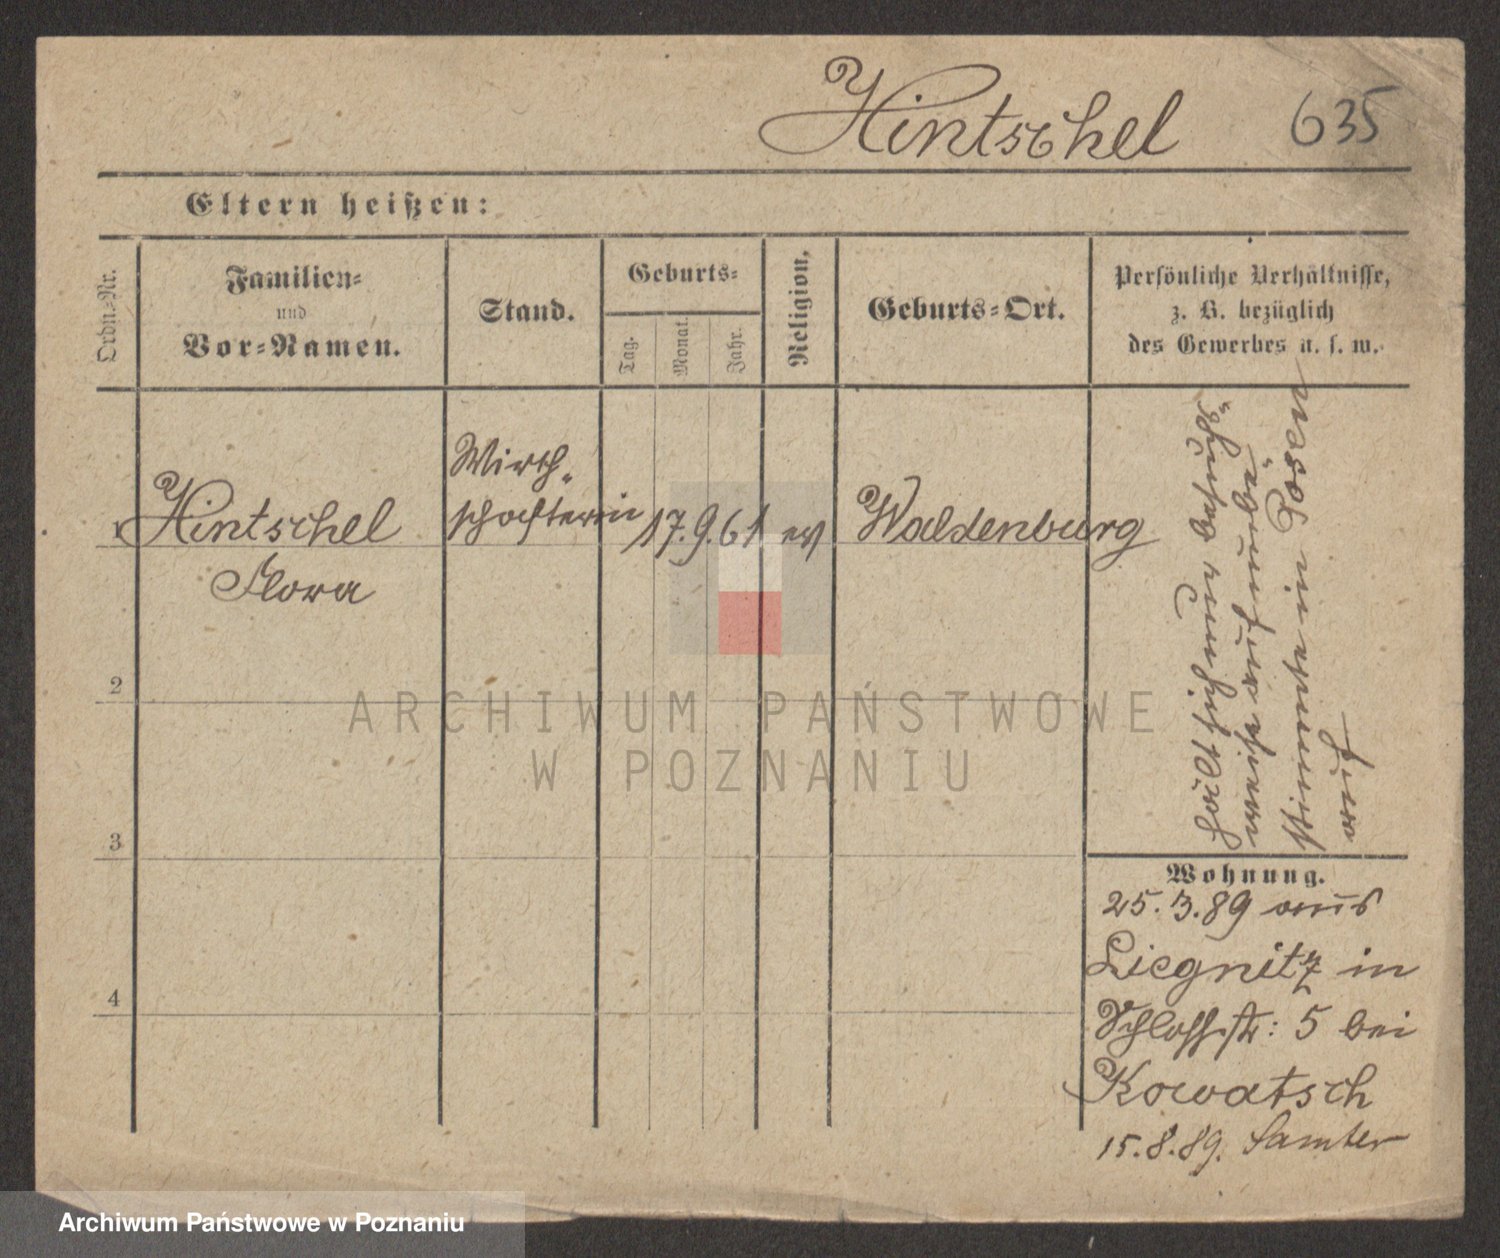 Hintschel 635
Eltern heißen:
Ordn.-Nr.
Familien-
und
Vor-Namen.
Stand.
Geburts-
Tag.
Monat.
Jahr.
Religion,
Geburts-Ort.
Persönliche Verhältnisse,
z. B. bezüglich
des Gewerbes u. s. w.
1 Hintschel
Flora
Wirth-
schafterin
17. 9. 61
ev
Waldenburg
2
3
4
in Posen
Wohnung.
25. 3. 89 aus
Liegnitz in
Schloßstr: 5 bei
Kowatsch
15. 8. 89. Samter
ARCHIWUM PAŃSTWOWE
W POZNANIU
Archiwum Państwowe w Poznaniu